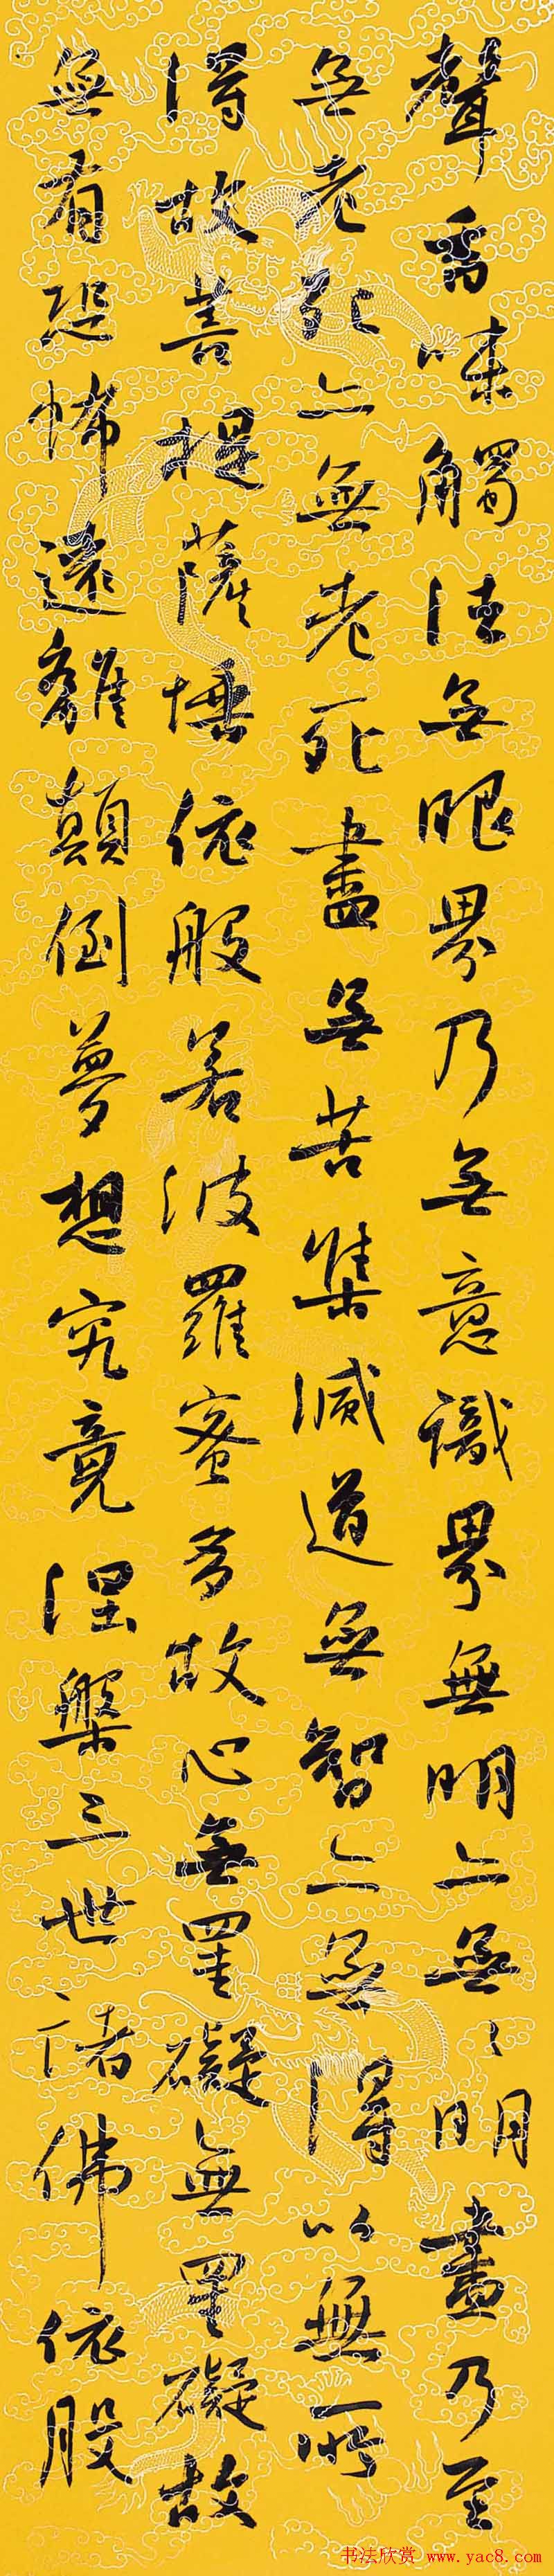 聲香味觸法無眼界乃無意識界無明亦無〻明盡乃至
無老死亦無老死盡無苦集滅道無智亦無得以無所
得故菩提薩埵依般若波羅蜜多故心無罣礙無罣礙故
無有恐怖遠離顛倒夢想究竟涅槃三世諸佛依般
书法欣赏 www.yac8.com